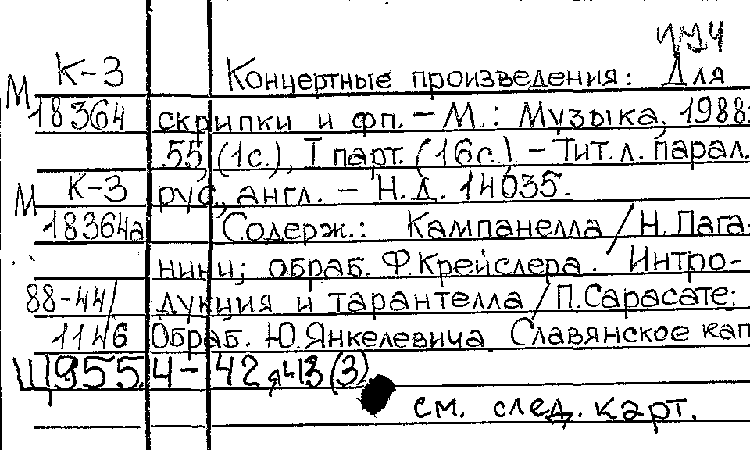 774
К-3 Концертные произведения: Для
М 18364 скрипки и фп. – М.: Музыка, 1988.
55, (1с.), I парт. (16с.) – Тит.л. парал.
М К-3 рус., англ. – Н.Д. 14035.
18364а Содерж.: Кампанелла / Н. Пага-
нини; обраб. Ф.Крейслера. Интро-
88-44/ дукция и тарантелла / П.Сарасате;
1146 Обраб. Ю.Янкелевича Славянское кап
Щ955.4-42я43(3)
см. след. карт.